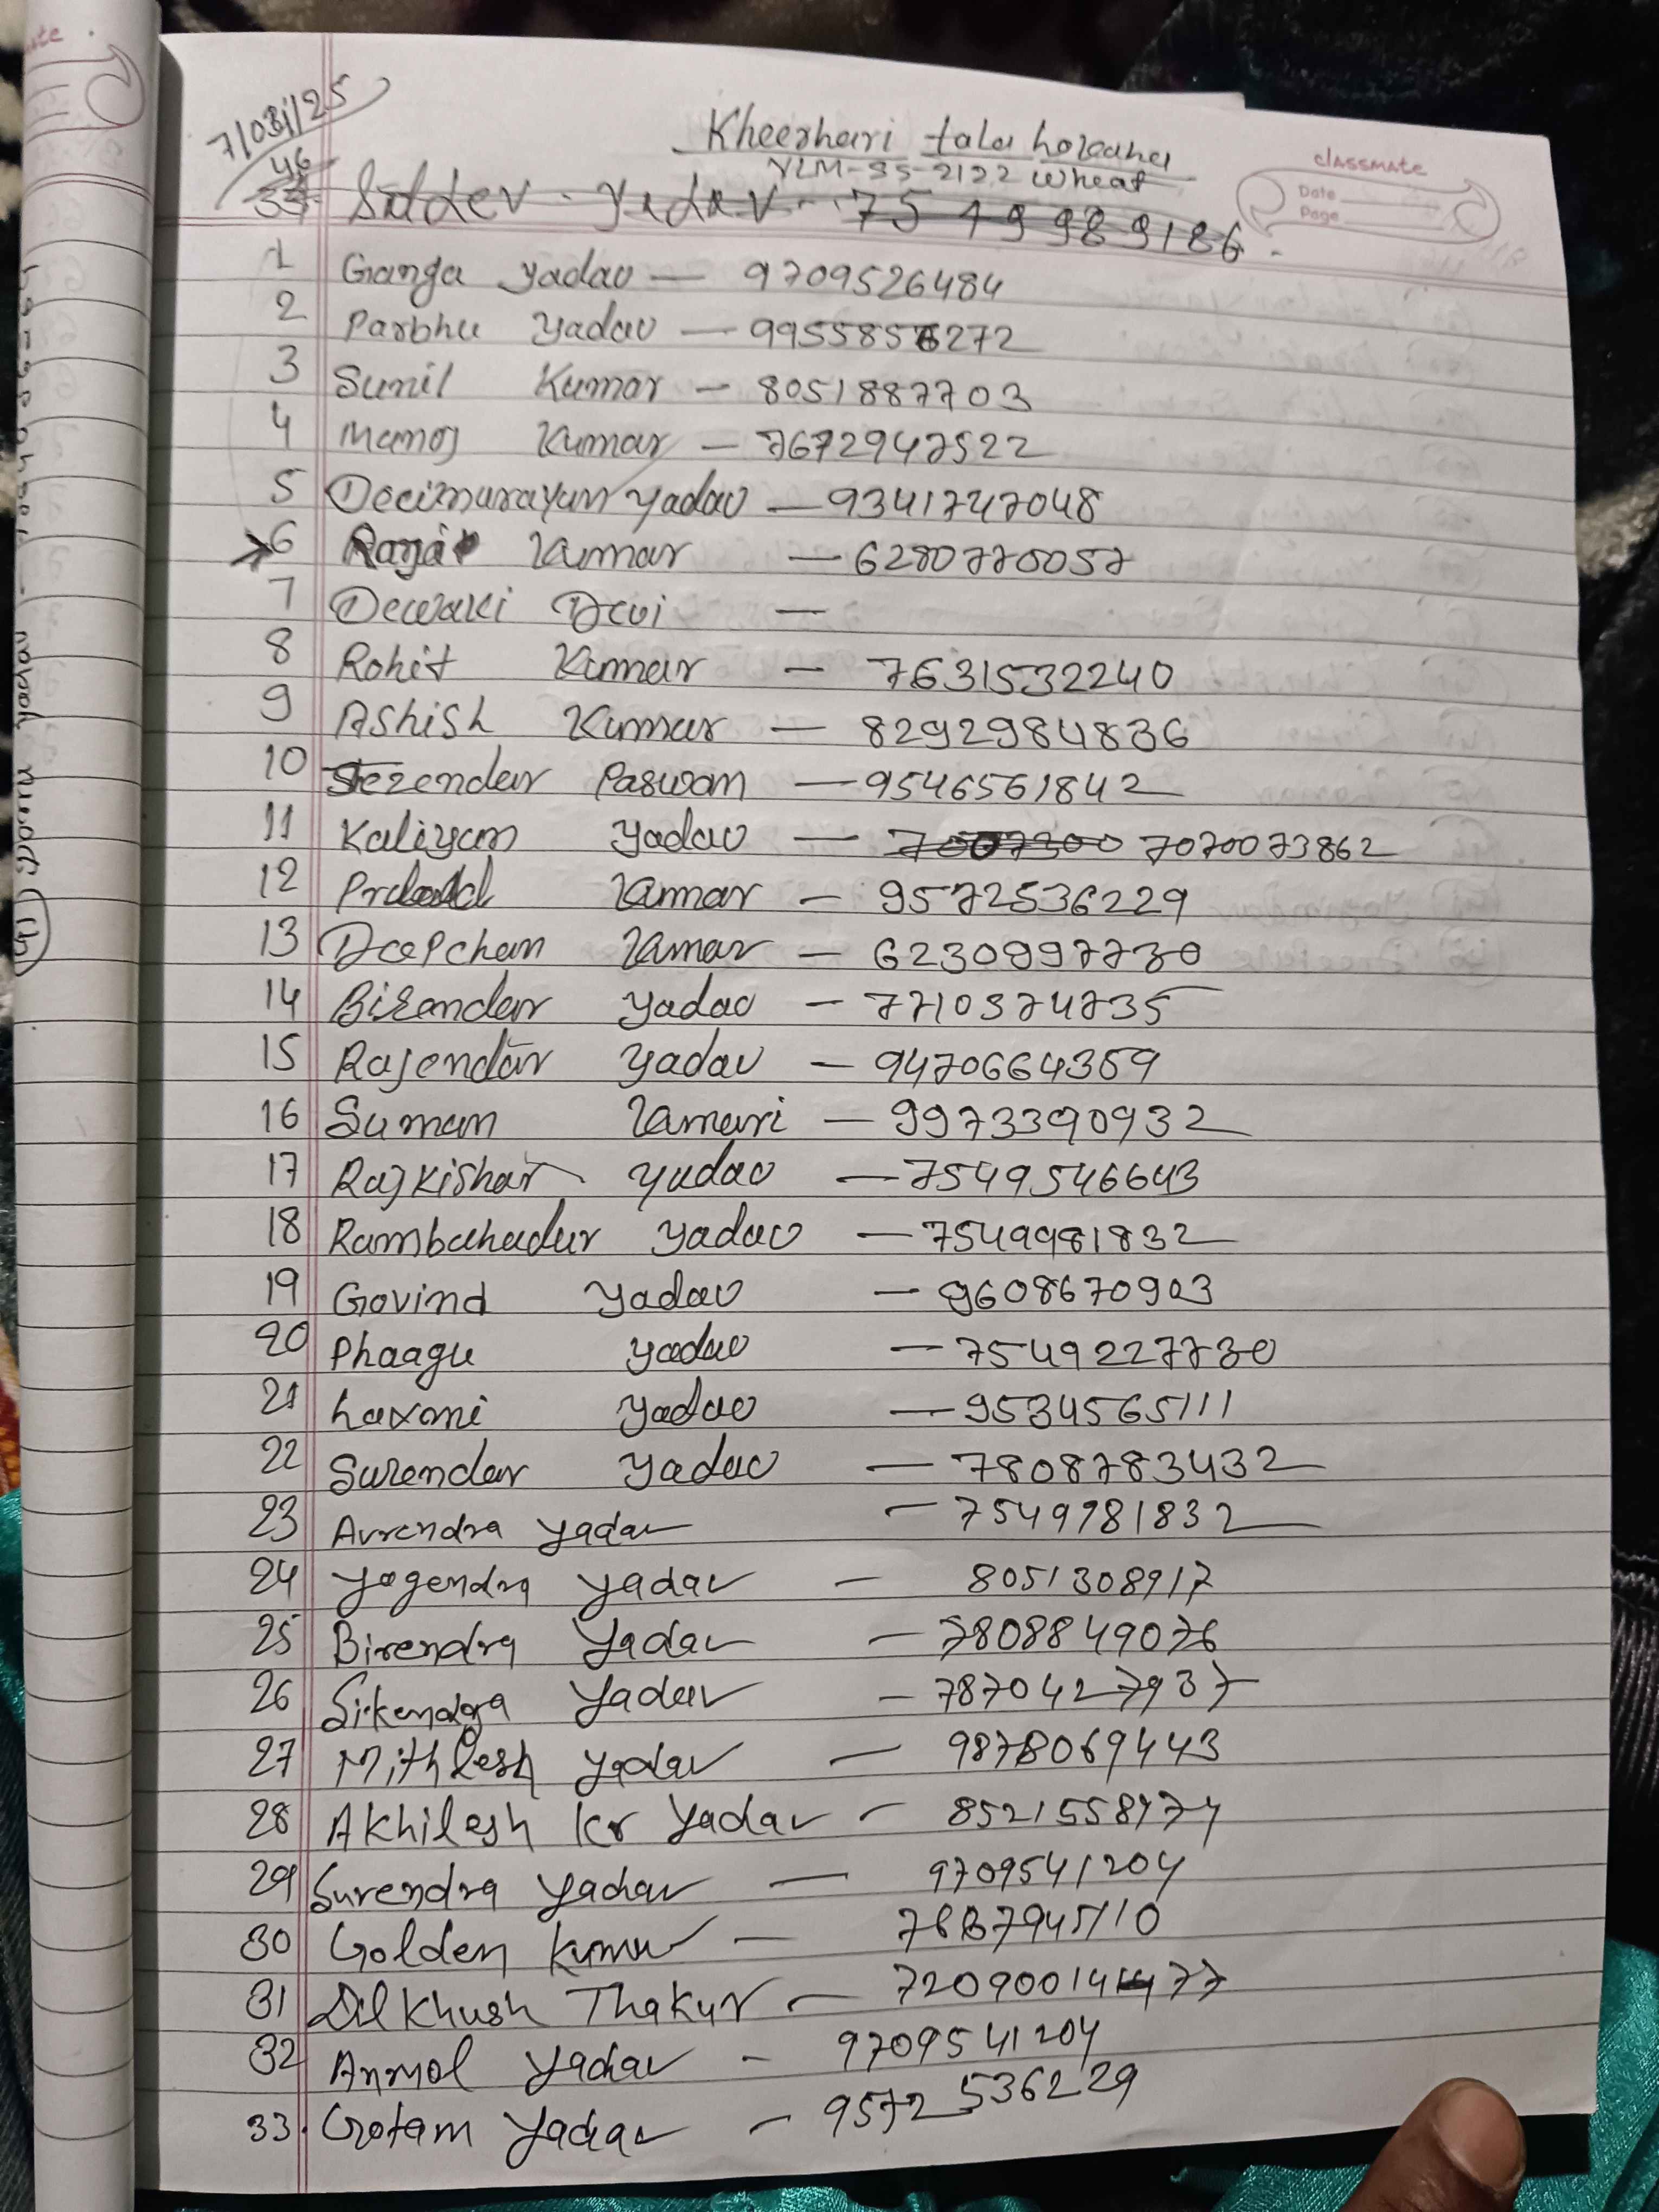 7/03/25
Kheerhari tala horeaha
VLM-SS-2122 Wheat
classmate
Date
Page
46
34 Sildev Yadav 7549989186
1 Ganga Yadav — 9709526484
2 Parbhu Yadav — 9955856272
3 Sunil Kumar — 8051887703
4 Manoj Kumar — 7672947522
5 Yadav — 9341747048
6 Kumar — 6280770057
7 Dewaki Devi —
8 Rohit Kumar — 7631532240
9 Ashish Kumar — 8292984836
10 Paswan — 9546561842
11 Kaliyan Yadav — 7070073862
12 Kumar — 9572536229
13 Deepchan Kumar — 6230997730
14 Birandar Yadav — 7710374735
15 Rajendar Yadav — 9470664359
16 Suman Kumari — 9973390932
17 Rajkishar Yadav — 7549546643
18 Rambahadur Yadav — 7549981832
19 Govind Yadav — 9608670903
20 Phaagu Yadav — 7549227730
21 Laxmi Yadav — 9534565111
22 Surendar Yadav — 7808783432
23 Avrendra Yadav — 7549981832
24 Yogendra Yadav — 8051308917
25 Birendra Yadav — 7808849076
26 Sikendra Yadav — 7870427937
27 Mithlesh Yadav — 9878069443
28 Akhilesh Kr Yadav — 8521558974
29 Surendra Yadav — 9709541204
30 Golden Kumar —
31 Dilkhush Thakur —
32 Anmol Yadav — 9709541204
33. Gotam Yadav — 9572536229